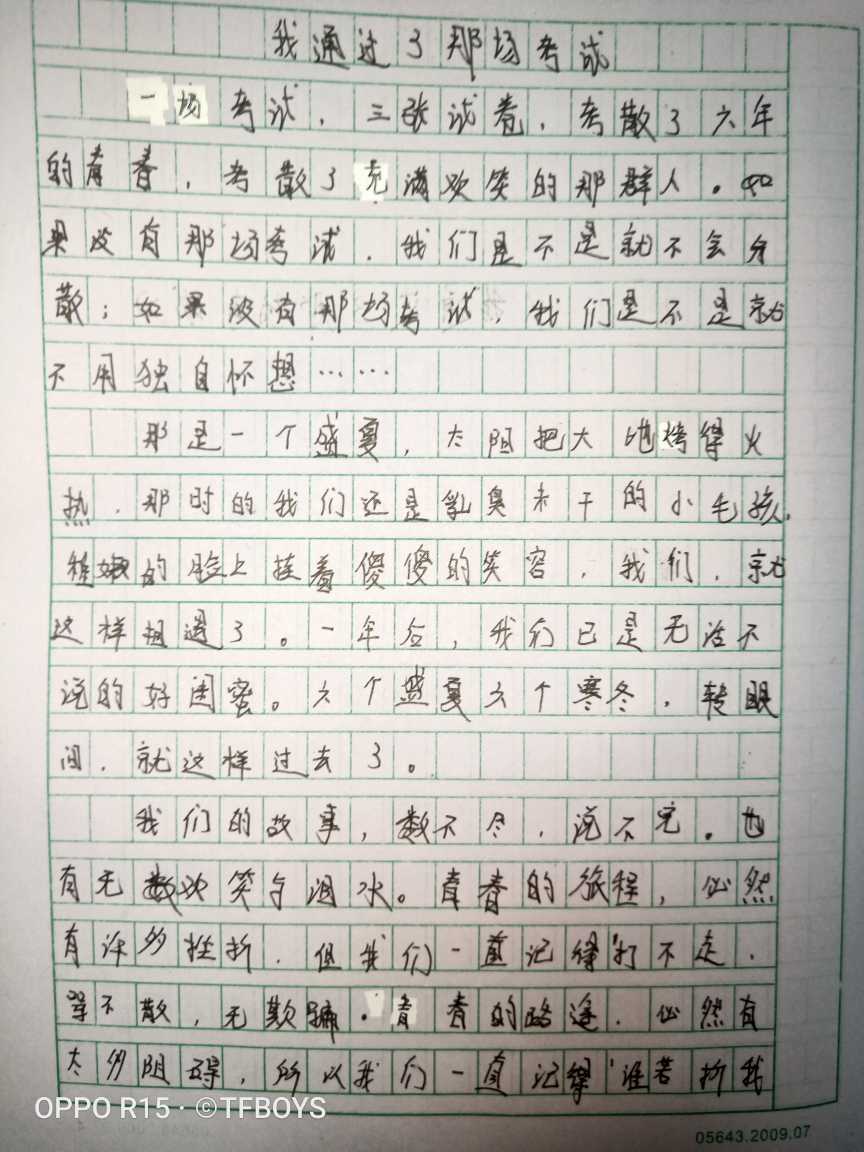 我通过了那场考试
一场考试，三张试卷，考散了六年
的青春，考散了充满欢笑的那群人。如
果没有那场考试，我们是不是就不会分
散；如果没有那场考试，我们是不是就
不用独自怀想……
那是一个盛夏，太阳把大地烤得火
热，那时的我们还是乳臭未干的小毛孩，
稚嫩的脸上挂着傻傻的笑容，我们，就
这样相遇了。一年后，我们已是无话不
说的好闺蜜。六个盛夏六个寒冬，转眼
间，就这样过去了。
我们的故事，数不尽，说不完。也
有无数欢笑与泪水。青春的旅程，必然
有许多挫折，但我们一直记得'打不走，
骂不散，无欺骗。青春的路途，必然有
太多阻碍，所以我们一直记得'谁若折我
OPPO R15 · ©TFBOYS
05643.2009.07